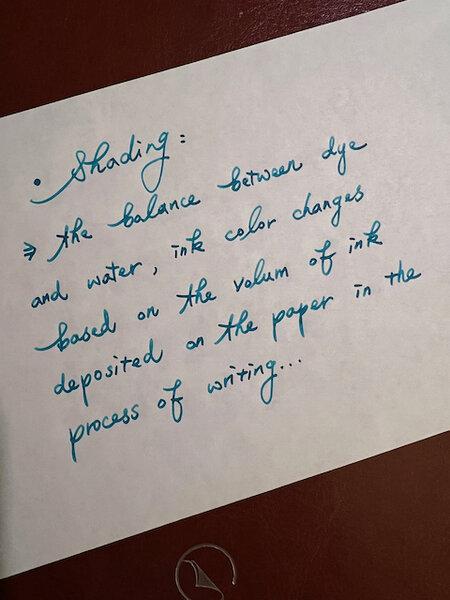 • Shading:
⇒ the balance between dye
and water, ink color changes
based on the volum of ink
deposited on the paper in the
process of writing...